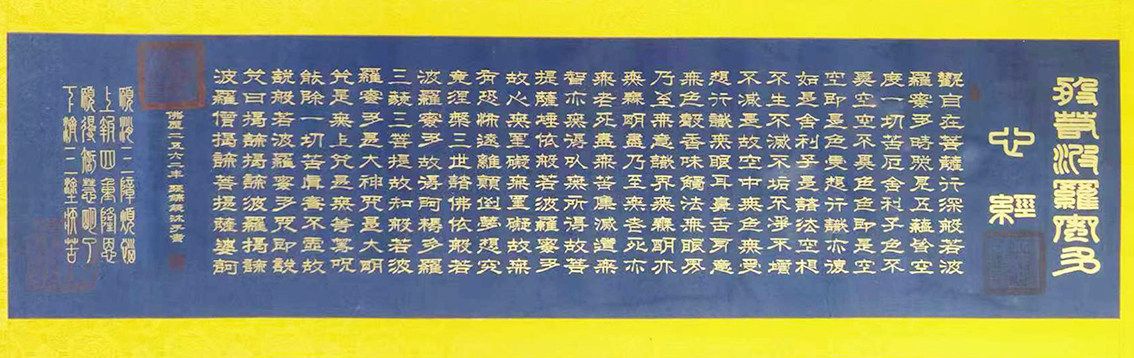 般若波羅蜜多
心經
觀自在菩薩行深般若波
羅蜜多時照見五蘊皆空
度一切苦厄舍利子色不
異空空不異色色即是空
空即是色受想行識亦復
如是舍利子是諸法空相
不生不滅不垢不淨不增
不減是故空中無色無受
想行識無眼耳鼻舌身意
無色聲香味觸法無眼界
乃至無意識界無無明亦
無無明盡乃至無老死亦
無老死盡無苦集滅道無
智亦無得以無所得故菩
提薩埵依般若波羅蜜多
故心無罣礙無罣礙故無
有恐怖遠離顛倒夢想究
竟涅槃三世諸佛依般若
波羅蜜多故得阿耨多羅
三藐三菩提故知般若波
羅蜜多是大神咒是大明
咒是無上咒是無等等咒
能除一切苦真實不虛故
說般若波羅蜜多咒即說
咒曰揭諦揭諦波羅揭諦
波羅僧揭諦菩提薩婆訶
佛曆二五六二年 沐手書
願消三障煩惱
上報四重隆恩
願得智慧明了
下濟三塗衆苦